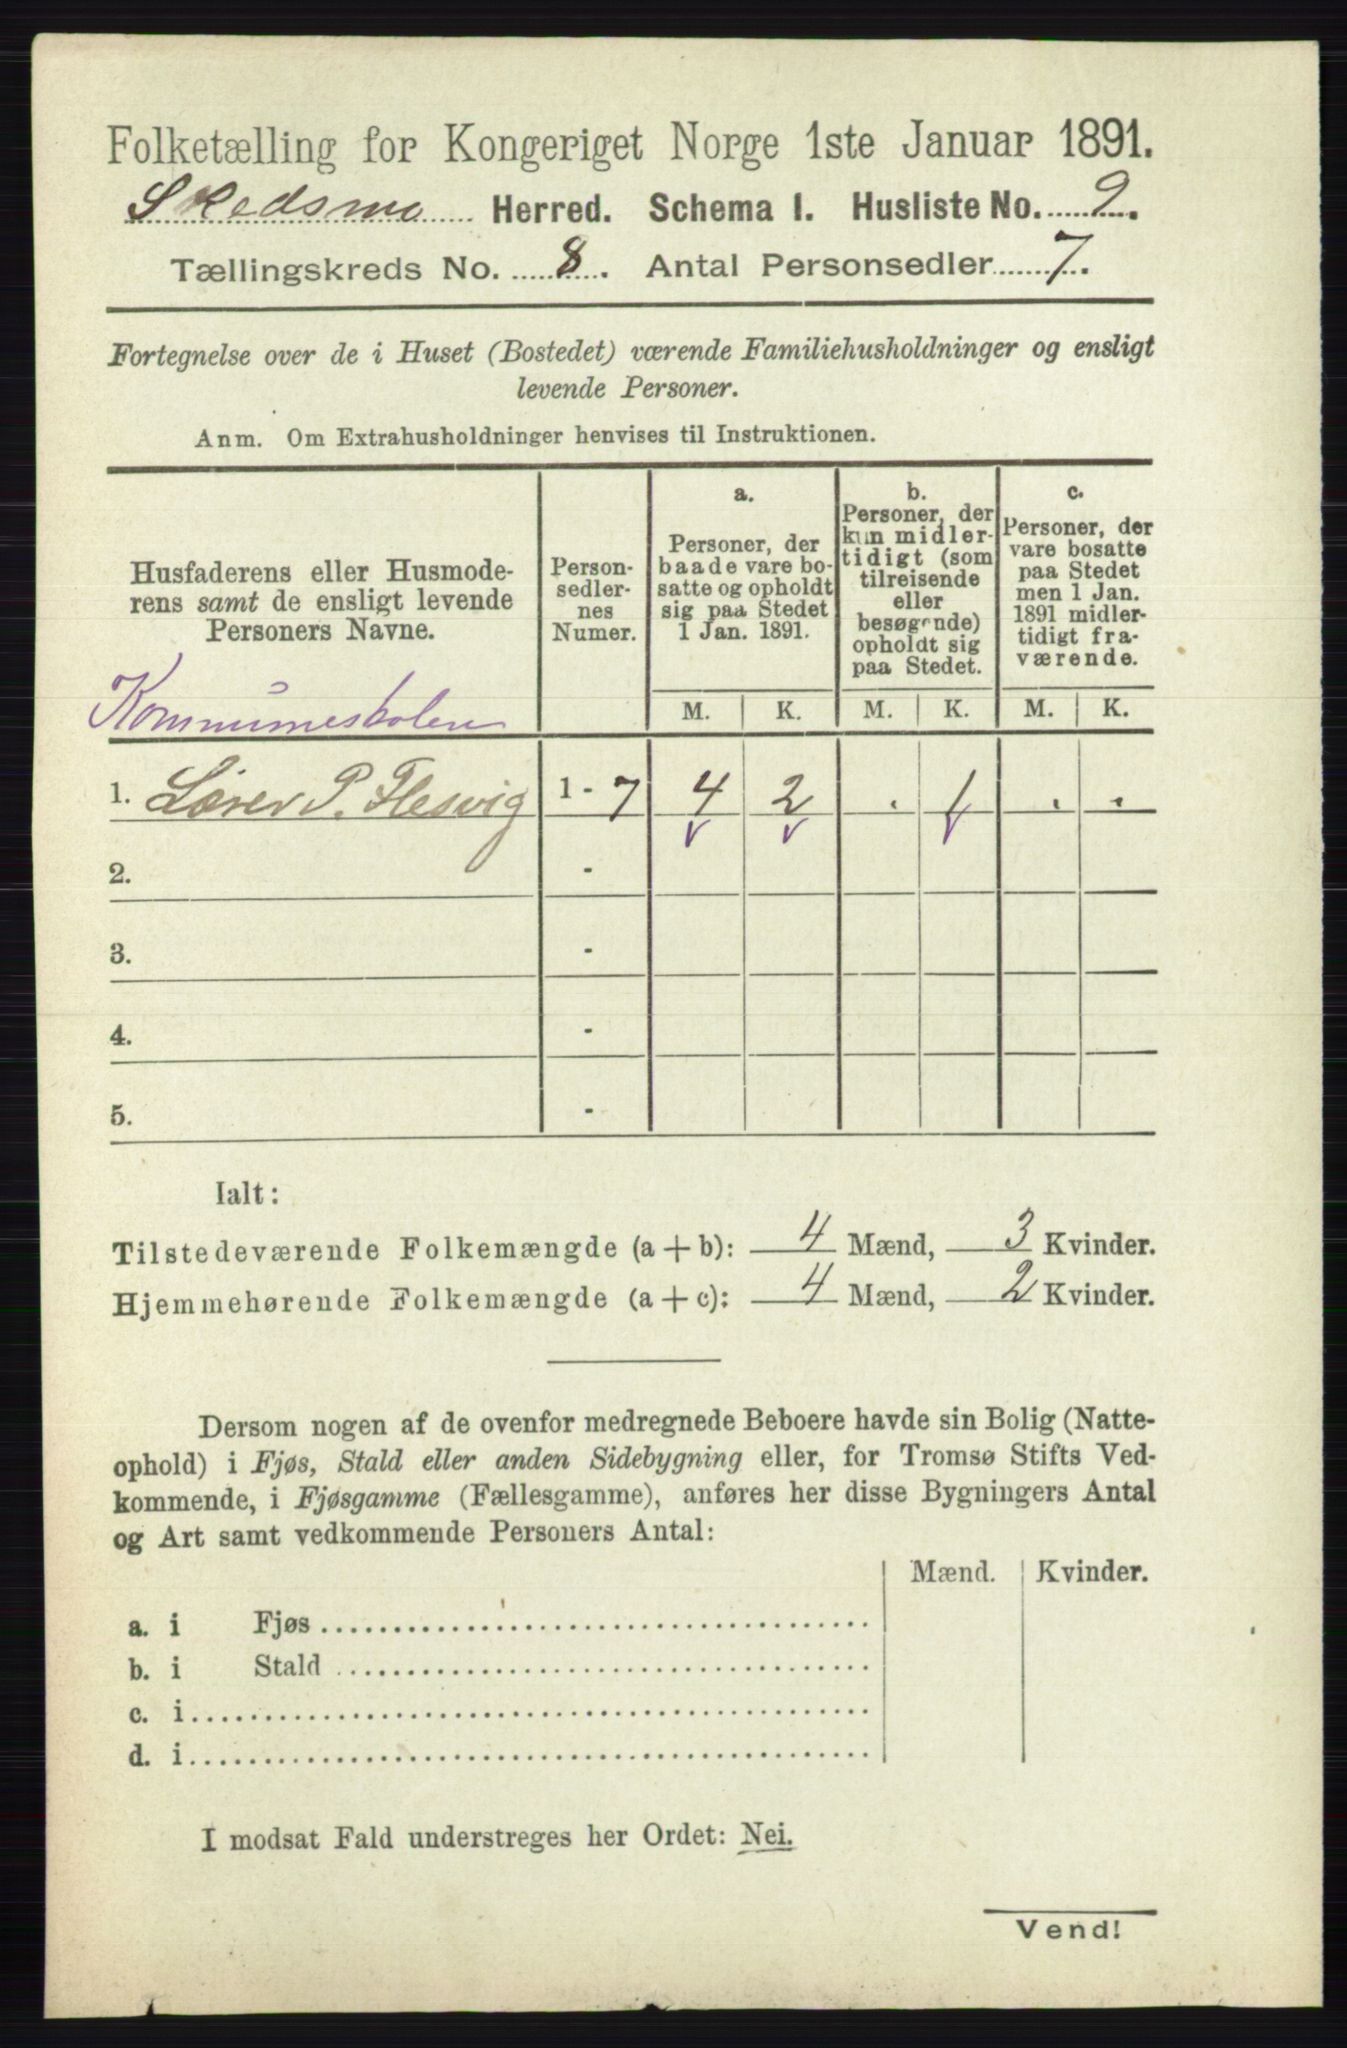 Folketælling for Kongeriget Norge 1ste Januar 1891.
Skedsmo Herred. Schema I. Husliste No. 9.
Tællingskreds No. 8. Antal Personsedler 7.
Fortegnelse over de i Huset (Bostedet) værende Familiehusholdninger og ensligt
levende Personer.
Anm. Om Extrahusholdninger henvises til Instruktionen.
Husfaderens eller Husmode-
rens samt de ensligt levende
Personers Navne.
Kommuneskolen
Person-
sedler-
nes
Numer.
a.
Personer, der
baade vare bo-
satte og opholdt
sig paa Stedet
1 Jan. 1891.
b.
Personer, der
kun midler-
tidigt (som
tilreisende
eller
besøgende)
opholdt sig
paa Stedet.
c.
Personer, der
vare bosatte
paa Stedet
men 1 Jan.
1891 midler-
tidigt fra-
værende.
M. K. M. K. M. K.
1. Lærer P. Flesvig 1 - 7 4 2 . 1 . .
2. -
3. -
4. -
5. -
Ialt:
Tilstedeværende Folkemængde (a + b): 4 Mænd, 3 Kvinder.
Hjemmehørende Folkemængde (a + c): 4 Mænd, 2 Kvinder.
Dersom nogen af de ovenfor medregnede Beboere havde sin Bolig (Natte-
ophold) i Fjøs, Stald eller anden Sidebygning eller, for Tromsø Stifts Ved-
kommende, i Fjøsgamme (Fællesgamme), anføres her disse Bygningers Antal
og Art samt vedkommende Personers Antal:
Mænd. Kvinder.
a. i Fjøs
b. i Stald
c. i
d. i
I modsat Fald understreges her Ordet: Nei.
Vend!